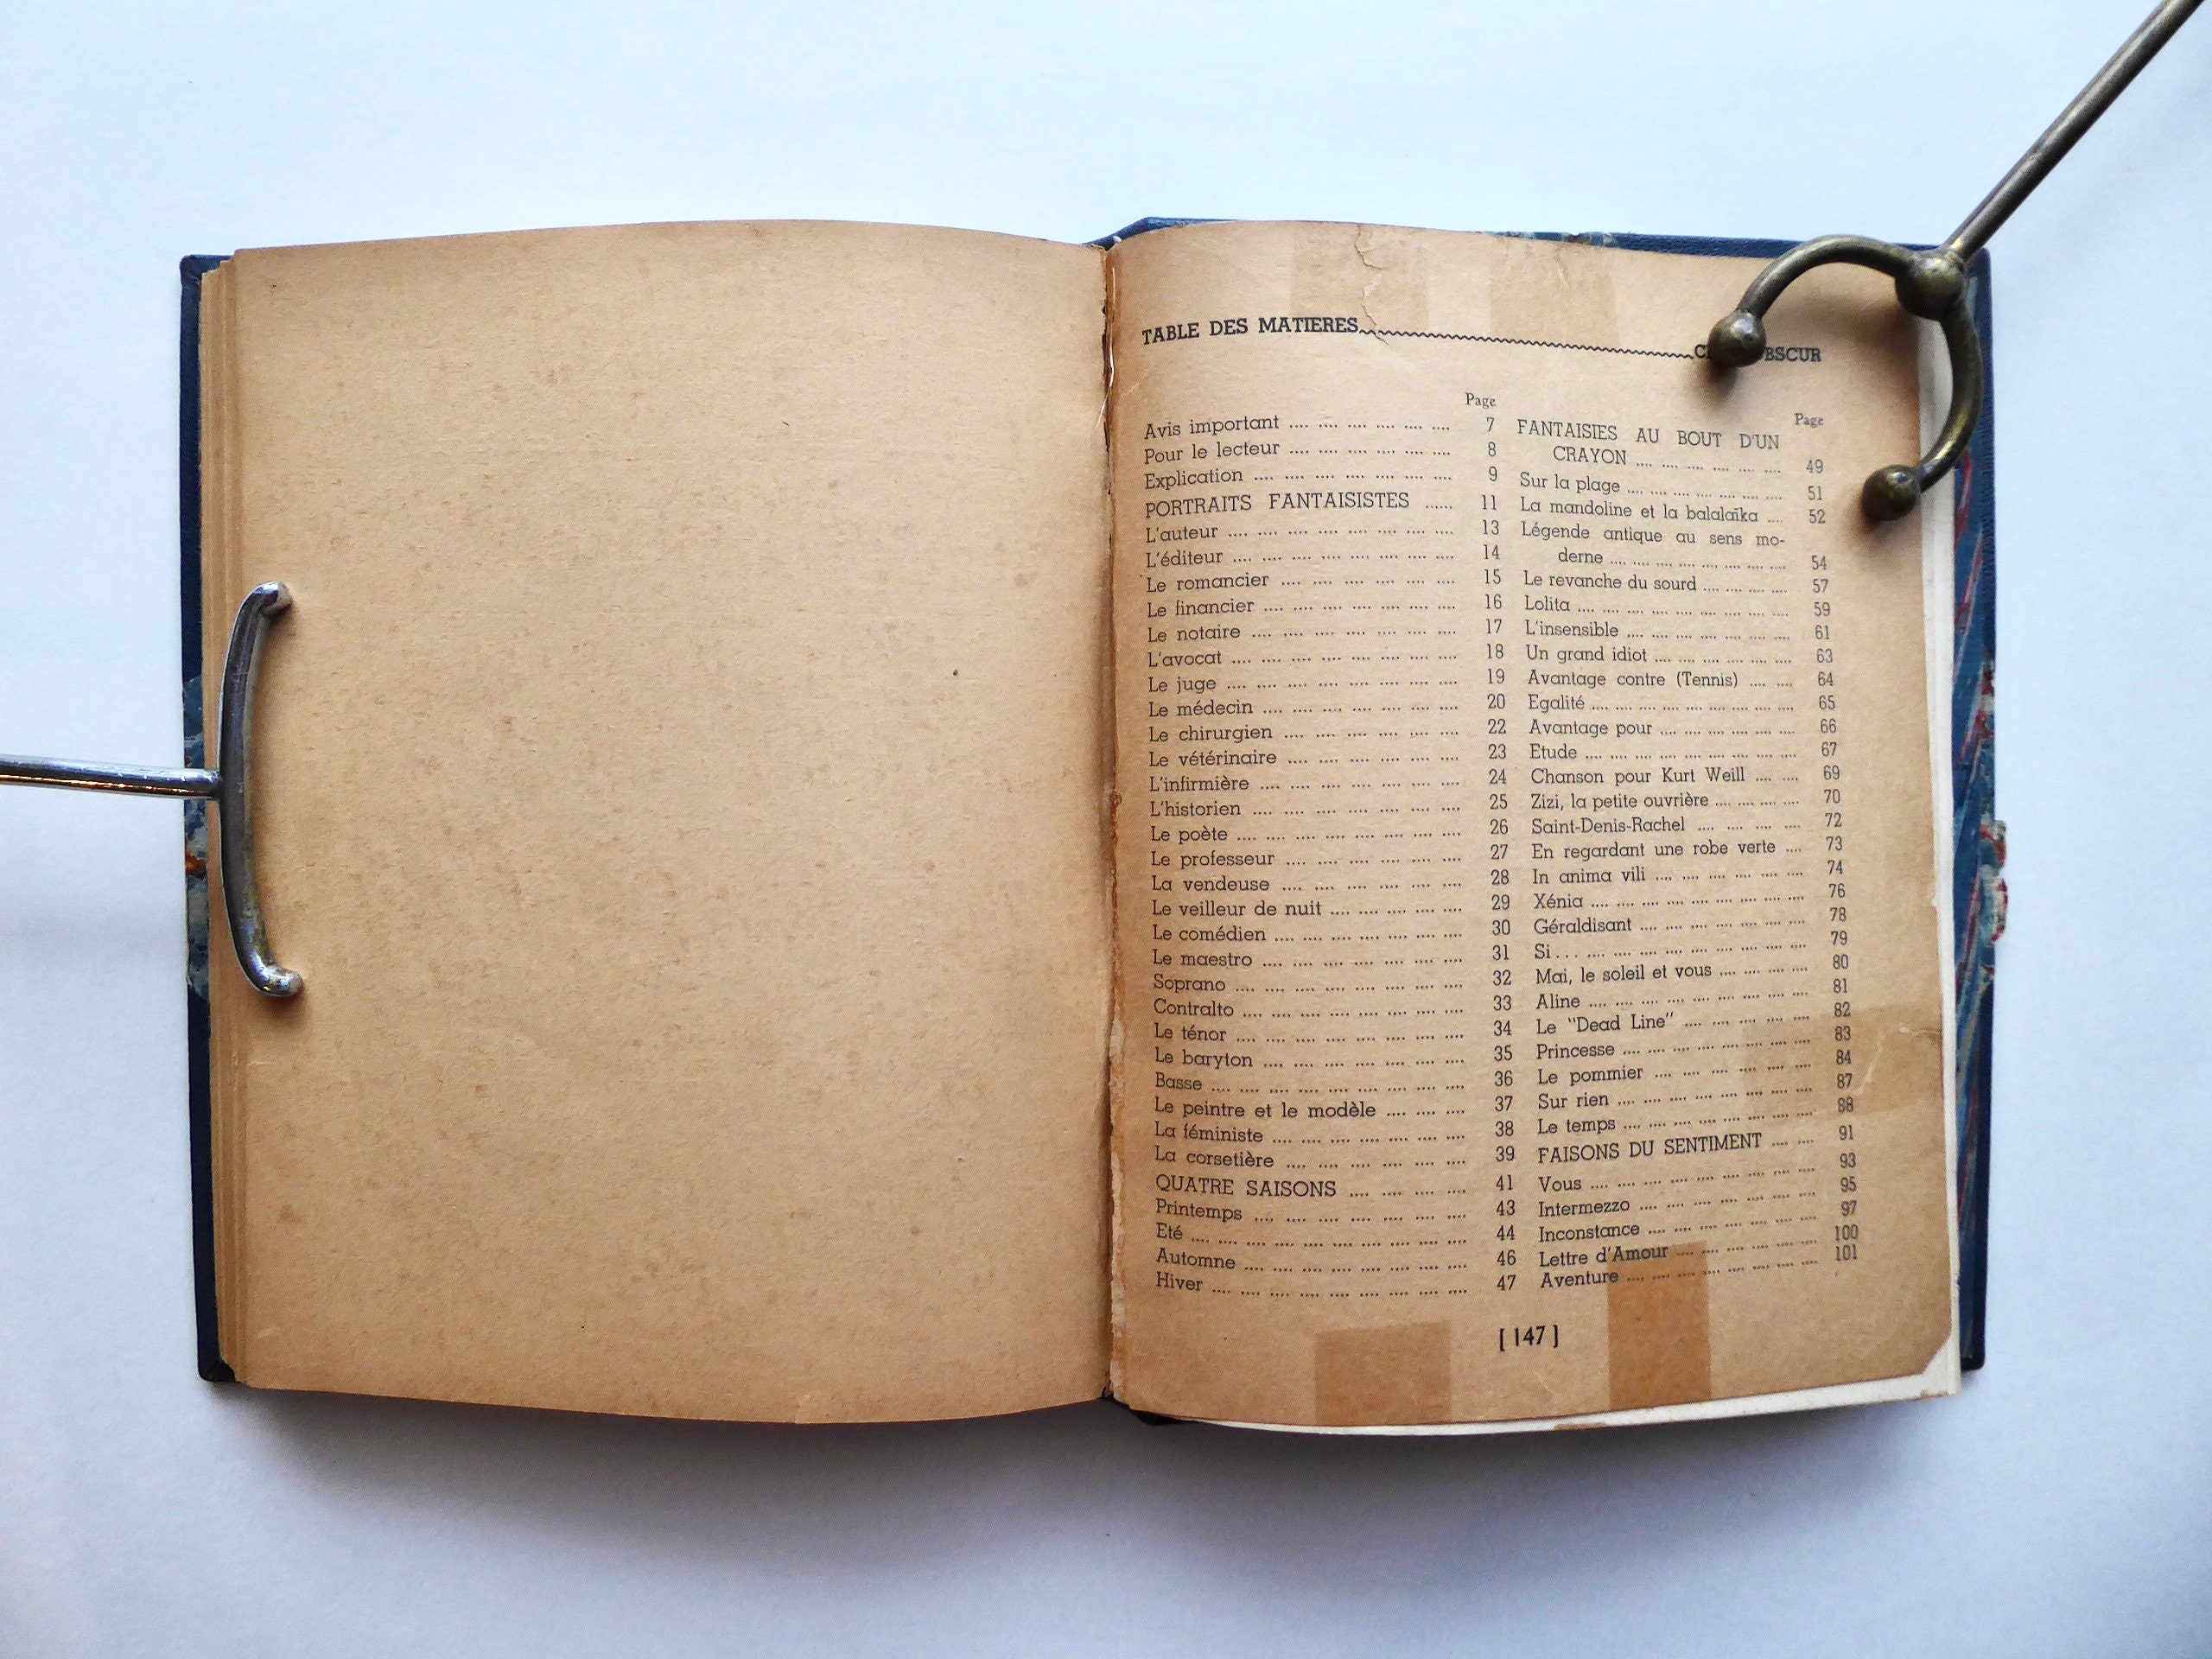 TABLE DES MATIERES
Page
Avis important .... .... .... .... .... .... 7
Pour le lecteur .... .... .... .... .... .... 8
Explication .... .... .... .... .... .... .... 9
PORTRAITS FANTAISISTES ...... 11
L'auteur .... .... .... .... .... .... .... .... 13
L'éditeur .... .... .... .... .... .... .... .... 14
Le romancier .... .... .... .... .... .... 15
Le financier .... .... .... .... .... .... .... 16
Le notaire .... .... .... .... .... .... .... 17
L'avocat .... .... .... .... .... .... .... .... 18
Le juge .... .... .... .... .... .... .... .... 19
Le médecin .... .... .... .... .... .... .... 20
Le chirurgien .... .... .... .... .... .... 22
Le vétérinaire .... .... .... .... .... .... 23
L'infirmière .... .... .... .... .... .... .... 24
L'historien .... .... .... .... .... .... .... 25
Le poète .... .... .... .... .... .... .... .... 26
Le professeur .... .... .... .... .... .... 27
La vendeuse .... .... .... .... .... .... 28
Le veilleur de nuit .... .... .... .... .... 29
Le comédien .... .... .... .... .... .... .... 30
Le maestro .... .... .... .... .... .... .... 31
Soprano .... .... .... .... .... .... .... .... 32
Contralto .... .... .... .... .... .... .... .... 33
Le ténor .... .... .... .... .... .... .... .... 34
Le baryton .... .... .... .... .... .... .... 35
Basse .... .... .... .... .... .... .... .... .... 36
Le peintre et le modèle .... .... .... 37
La féministe .... .... .... .... .... .... .... 38
La corsetière .... .... .... .... .... .... 39
QUATRE SAISONS .... .... .... .... 41
Printemps .... .... .... .... .... .... .... 43
Eté .... .... .... .... .... .... .... .... .... .... 44
Automne .... .... .... .... .... .... .... .... 46
Hiver .... .... .... .... .... .... .... .... .... 47
Page
FANTAISIES AU BOUT D'UN
CRAYON .... .... .... .... .... .... 49
Sur la plage .... .... .... .... .... .... .... 51
La mandoline et la balalaïka .... 52
Légende antique au sens mo-
derne .... .... .... .... .... .... .... 54
Le revanche du sourd .... .... .... .... 57
Lolita .... .... .... .... .... .... .... .... .... 59
L'insensible .... .... .... .... .... .... .... 61
Un grand idiot .... .... .... .... .... .... 63
Avantage contre (Tennis) .... .... 64
Egalité .... .... .... .... .... .... .... .... .... 65
Avantage pour .... .... .... .... .... .... 66
Etude .... .... .... .... .... .... .... .... .... 67
Chanson pour Kurt Weill .... .... 69
Zizi, la petite ouvrière .... .... .... .... 70
Saint-Denis-Rachel .... .... .... .... 72
En regardant une robe verte .... 73
In anima vili .... .... .... .... .... .... 74
Xénia .... .... .... .... .... .... .... .... .... 76
Géraldisant .... .... .... .... .... .... .... 78
Si... .... .... .... .... .... .... .... .... .... 79
Mai, le soleil et vous .... .... .... .... 80
Aline .... .... .... .... .... .... .... .... .... 81
Le "Dead Line" .... .... .... .... .... 82
Princesse .... .... .... .... .... .... .... .... 83
Le pommier .... .... .... .... .... .... .... 84
Sur rien .... .... .... .... .... .... .... .... 87
Le temps .... .... .... .... .... .... .... .... 88
FAISONS DU SENTIMENT .... .... 91
Vous .... .... .... .... .... .... .... .... .... 93
Intermezzo .... .... .... .... .... .... .... 95
Inconstance .... .... .... .... .... .... .... 97
Lettre d'Amour .... .... .... .... .... .... 100
Aventure .... .... .... .... .... .... .... .... 101
[ 147 ]